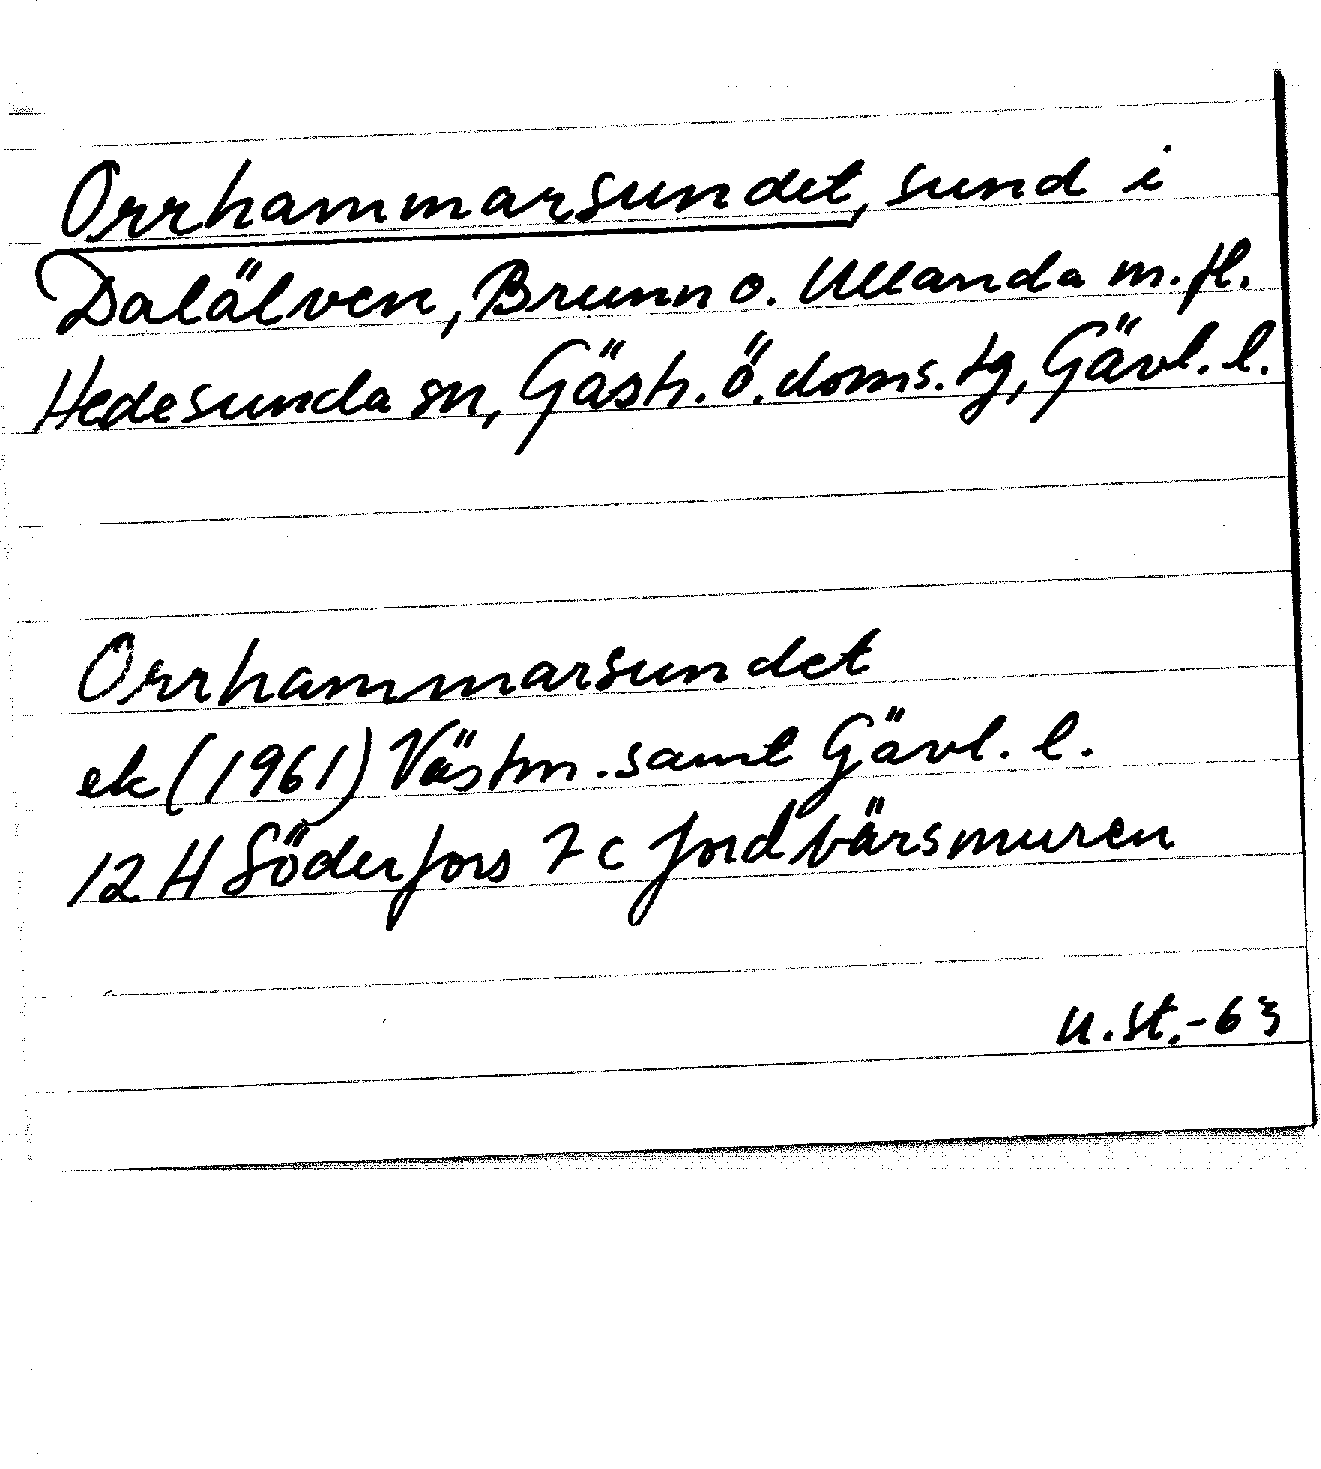 Orrhammarsundet, sund i
Dalälven, Brunn o. Ullanda m.fl.
Hedesunda sn, Gästr. ö. doms. tg, Gävl. l.
Orrhammarsundet
ek (1961) Västm. samt Gävl. l.
12 H Söderfors 7 c Jordbärsmuren
u.st.-63